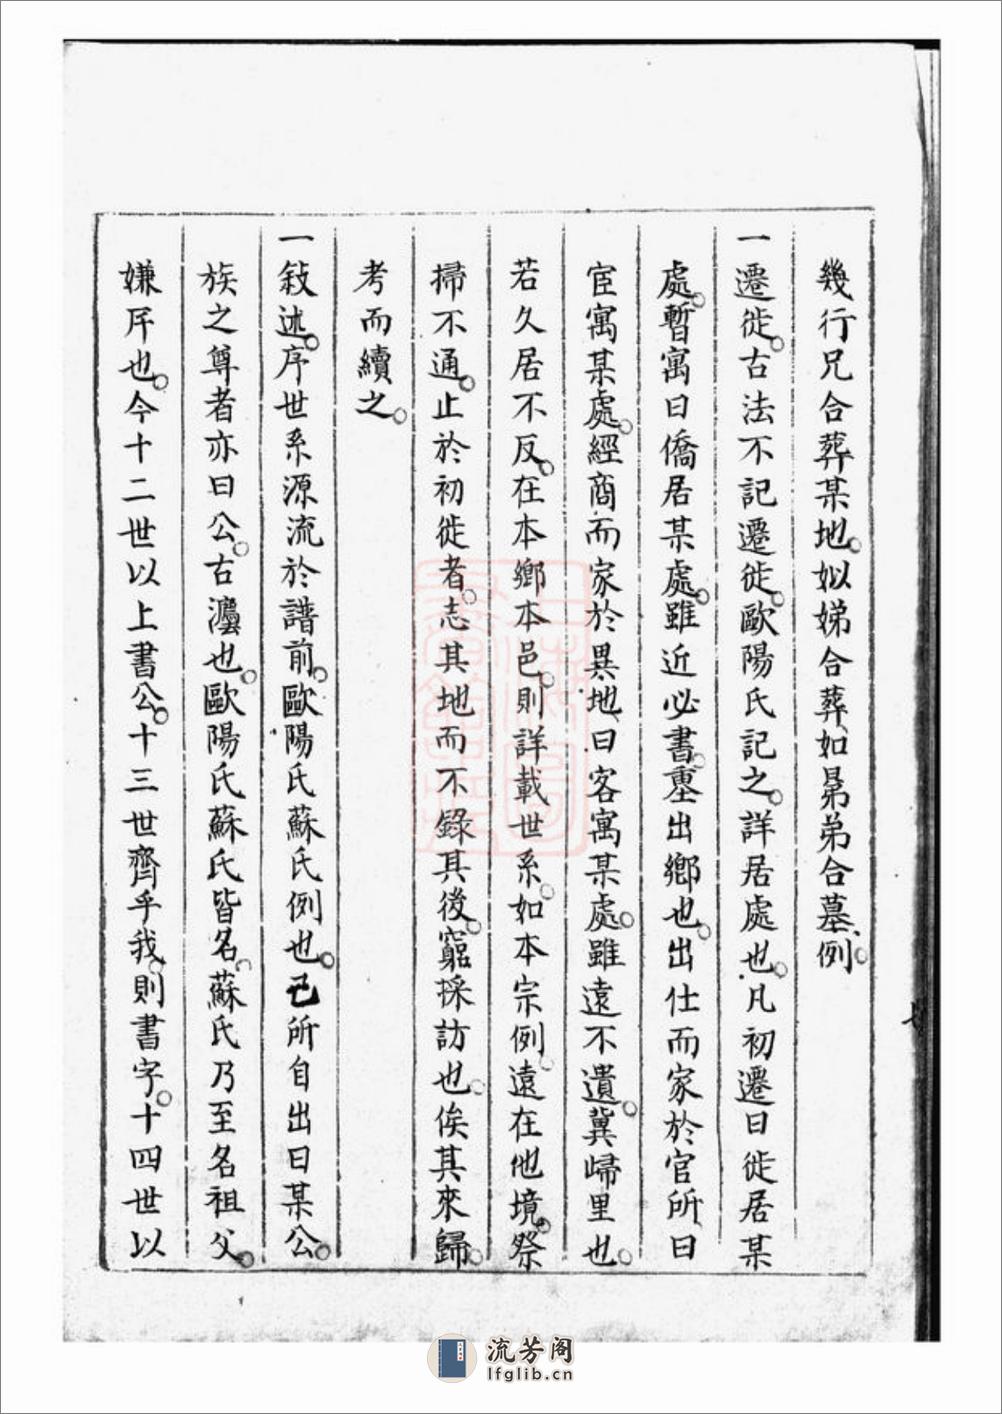 幾行兄合葬某地。姒娣合葬、如晜弟合墓例。
一遷徙。古法不記遷徙。歐陽氏記之。詳居處也。凡初遷曰徙居某
處。暫寓曰僑居某處。雖近必書。重出鄉也。出仕而家於官所曰
宦寓某處。經商而家於異地、曰客寓某處。雖遠不遺。冀歸里也。
若久居不反。在本鄉本邑。則詳載世系。如本宗例。遠在他境。祭
掃不通。止於初徙者。志其地而不錄其後。窮採訪也。俟其來歸。
考而續之。
一敍述。序世系源流於譜前。歐陽氏蘇氏例也。己所自出曰某公。
族之尊者亦曰公。古灋也。歐陽氏蘇氏皆名。蘇氏乃至名祖父。
嫌斥也。今十二世以上書公。十三世齊乎我。則書字。十四世以
流芳阁
lfglib.cn